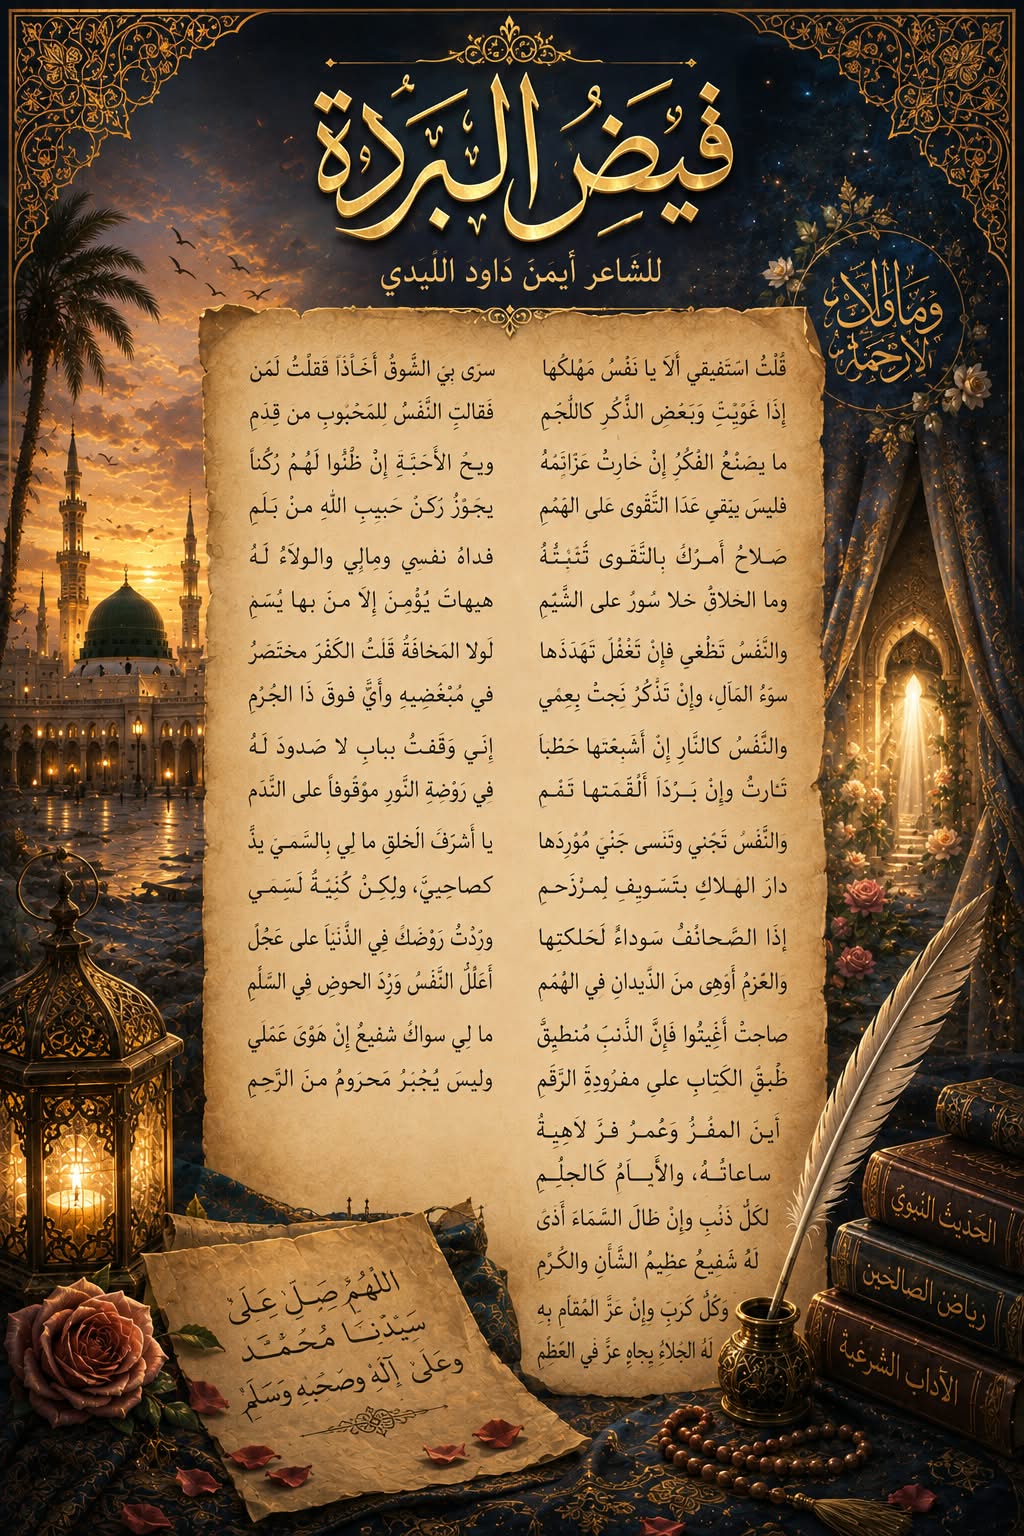 فَيْضُ البُردَة
للشَاعر أَيمَنَ دَاود اللَيدي
قُلْتُ اسْتَفيقي أَلَا يا نَفْسُ مَهْلكُها
إذَا غَوَيْتِ وَبَعْضِ الذَّكُرِ كاللُّجُمِ
ما يصَنْعُ الفْكُرُ إنْ خَارتْ عَزَائمُهُ
فليسَ يبْقي عَدَا التَّقْوى على الهَمْمِ
صَلاحُ أَمرُكَ بِالتَّقَوى تُثَبِّتُهُ
وما الخلاقُ خلا سُورُ على الشَّيْمِ
والنَّفَسُ تَطْغي فإنْ تَغْفُلَ تَهَدَدَها
سوَءُ المَآلِ، وإنْ تَذْكُرُ نَجتْ بِعِمْي
والنَّفَسُ كالنَّارِ إنْ أَشَبِعَتها حَطْباَ
تَارتُ وإنْ بَرْدَاً أَلْقَمَتها تَقْمِ
وَالنَّفَسُ تَجْني وتَنْسى جَنْيَ مُوْرِدَها
دارَ الهَلاكِ بتَسَويفِ لِمزْدَحمِ
إذَا الصَّحائفُ سَوداءُ لَحَلكتِها
وَالعَزمُ أَوَهى منَ الذَّيدانِ في الهُمَمِ
صاحتْ أَغِيثُوا فَإنَّ الذَّنبَ مُنطبِقٌ
طْبقَ الكَتابِ علي مفرُودِةِ الرَّقَمِ
أَينَ المفُرُّ وَعُمرُ فرَّ لاَهِيةُ
ساعاتُهُ، والأَيامُ كَالجلُمِ
لكَلُّ ذَنْبِ وإنْ طالَ السَّمَاءَ أَذىَ
لَهُ شَفيعُ عظيمُ الشَّأنِ والكُرَّمِ
وَكُلُّ كَربَ وإنْ عَزَّ المُقَامِ بِهِ
لَهُ الجْلاَءُ بِجاهِ عزَّ في العَظَمِ
سرَى بيَ الشَّوقُ أَخَاذَاً فَقلْتُ لَمَن
فَقالتِ النَّفَسُ لِلمَحْبُوبِ منَ قِدَمِ
ويحُ الأَحَبَّةِ إنْ ظَنُّوا لَهُمُ رُكْناً
يجَوْزُ رُكَنَ حَبيبِ اللهِ منْ بَلَمِ
فداهُ نفسِي ومِالِي والولاَءُ لَهُ
هيهاتَ يُؤْمِنَ إلَا منَ بها يُسَمْ
لَولا المَخافَةُ قَلَتُ الكَفْرَ مختَصَرُ
في مُبْغُضِيهِ وأَيٌّ فوقَ ذَا الجُرُمِ
إنَي وَقَفتُ ببابِ لا صَدودَ لَهُ
فِي رَوْضِةِ النَّورِ موْقُوفاً على النَّدَم
يا أَشرَفَ الخَلقِ ما لِي بِالسَّميَ يدٌ
كصاحِبيَّ، ولِكِنْ كُنِيَةُ لَسَمَي
ورَدْتُ رَوْضَكَ فِي الدَّنْيَاَ على عَجُلَ
أَعَلَّلُ النَّفَسُ وَرَْدَ الحوضِ في السَّلَمِ
ما لِي سواكَ شفيعُ إنْ هَوْىَ عَمَلَي
وليسَ يُجْبَرُ مَحرومُ منَ الرَّحِمِ
اللّهُمَّ صَلِّ عَلَىٰ
سَيِّدْنِنَا مُحُمَّد
وعَلَىٰ آلَهْ وصَحْبهِ وَسَلَّمِ
الحَديثُ النَبويَ
رياض الصالحين
الآداب الشرعية